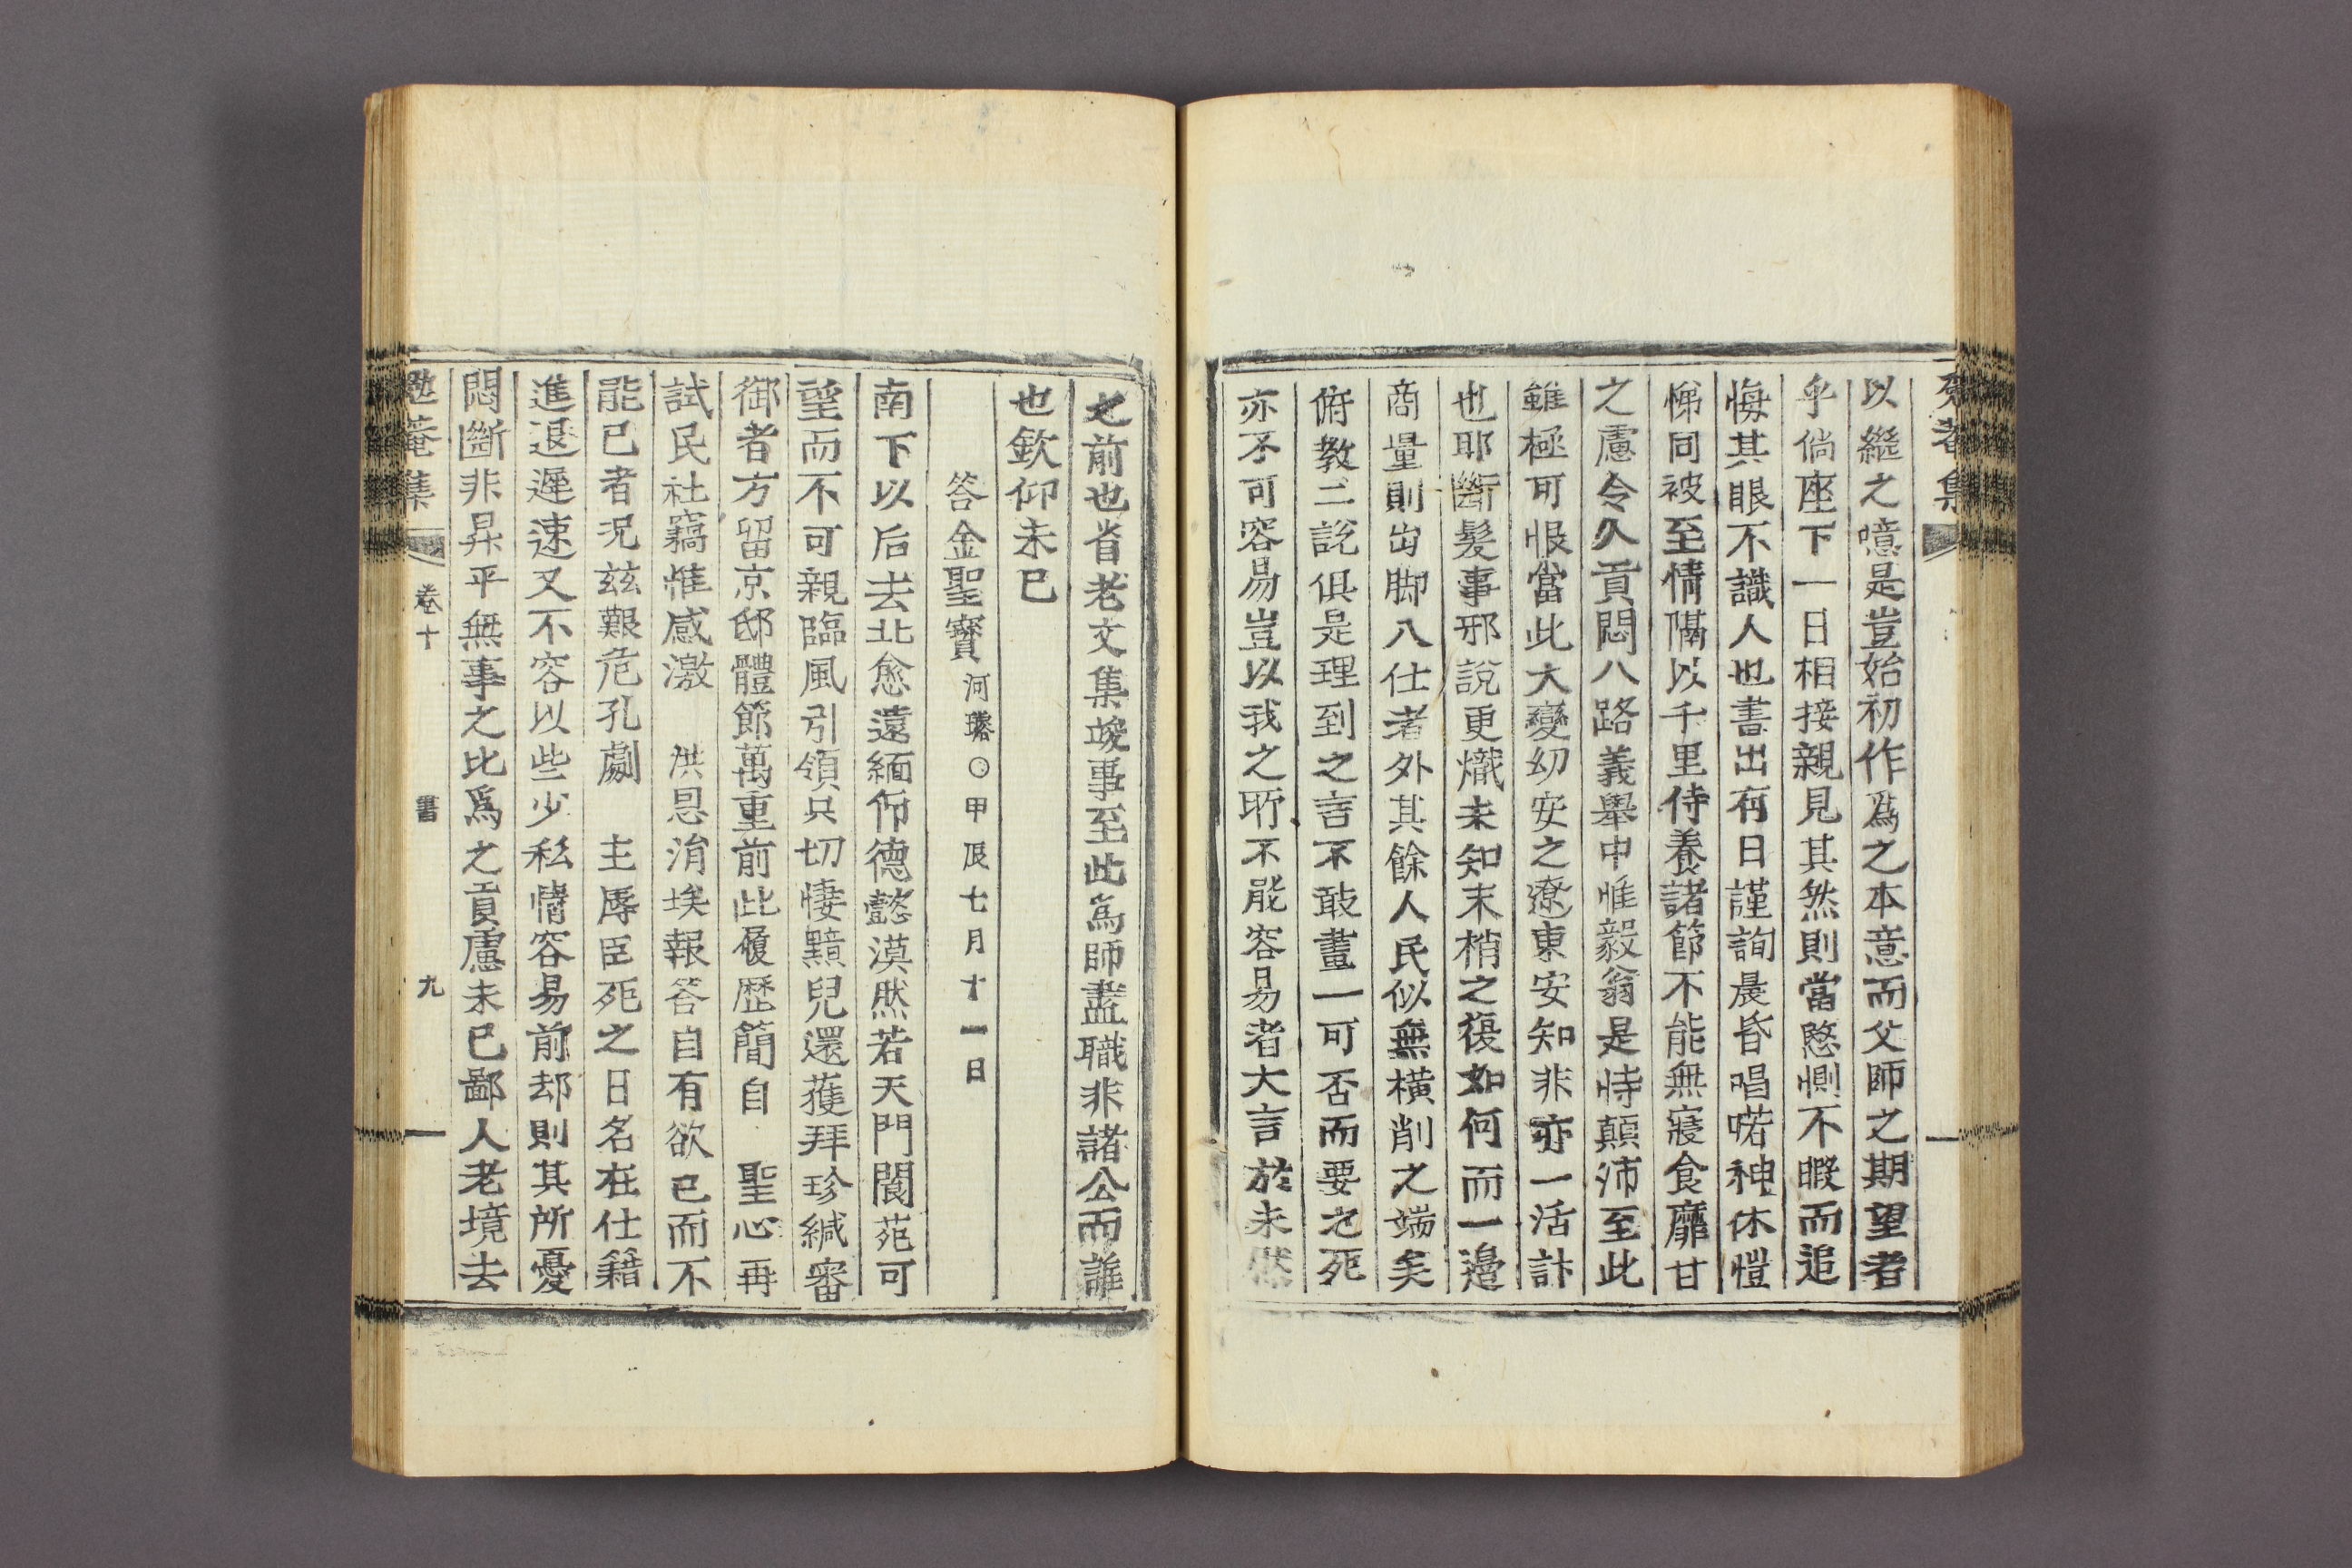 以繼之噫是豈始初作爲之本意而父師之期望者
乎倘座下一日相接親見其然則當愍惻不暇而追
悔其眼不識人也書出有日謹詢晨昏唱喏神休愷
悌同被至情隔以千里侍養諸節不能無寢食靡甘
之慮令久貢悶八路義擧中惟毅翁是恃顚沛至此
雖極可恨當此大變幼安之遼東安知非亦一活計
也耶斷髮事邪說更熾未知末梢之復如何而一邊
商量則出脚入仕者外其餘人民似無橫削之端矣
俯敎二說俱是理到之言不敢畫一可否而要之死
亦不可容易豈以我之所不能容易者大言於未然
之前也省老文集竣事至此為師盡職非諸公而誰
也欽仰未已
答金聖寶河璿○甲辰七月十一日
南下以后去北愈遠緬仰德懿漠然若天門閬苑可
望而不可親臨風引領只切悽黯兒還獲拜珍緘審
御者方留京邸體節萬重前此履歷簡自 聖心再
試民社竊惟感激 洪恩涓埃報答自有欲已而不
能已者况玆艱危孔劇 主辱臣死之日名在仕籍
進退遲速又不容以些少私情容易前却則其所憂
悶斷非昇平無事之比爲之貢慮未已鄙人老境去
卷十 書 九